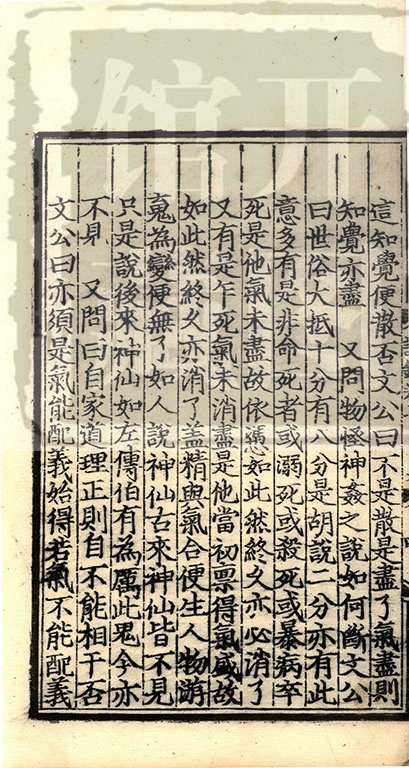 這知覺便散否文公曰不是散是盡了氣盡則
知覺亦盡　又問物怪神姦之說如何斷文公
曰世俗大抵十分有八分是胡說二分亦有此
意多有是非命死者或溺死或殺死或暴病卒
死是他氣未盡故依憑如此然終久亦必消了
又有是乍死氣未消盡是他當初禀得氣盛故
如此然終久亦消了盖精與氣合便生人物游
䰟為變便無了如人說神仙古來神仙皆不見
只是說後來神仙如左傳伯有為厲此鬼今亦
不見　又問曰自家道理正則自不能相干否
文公曰亦須是氣能配義始得若氣不能配義